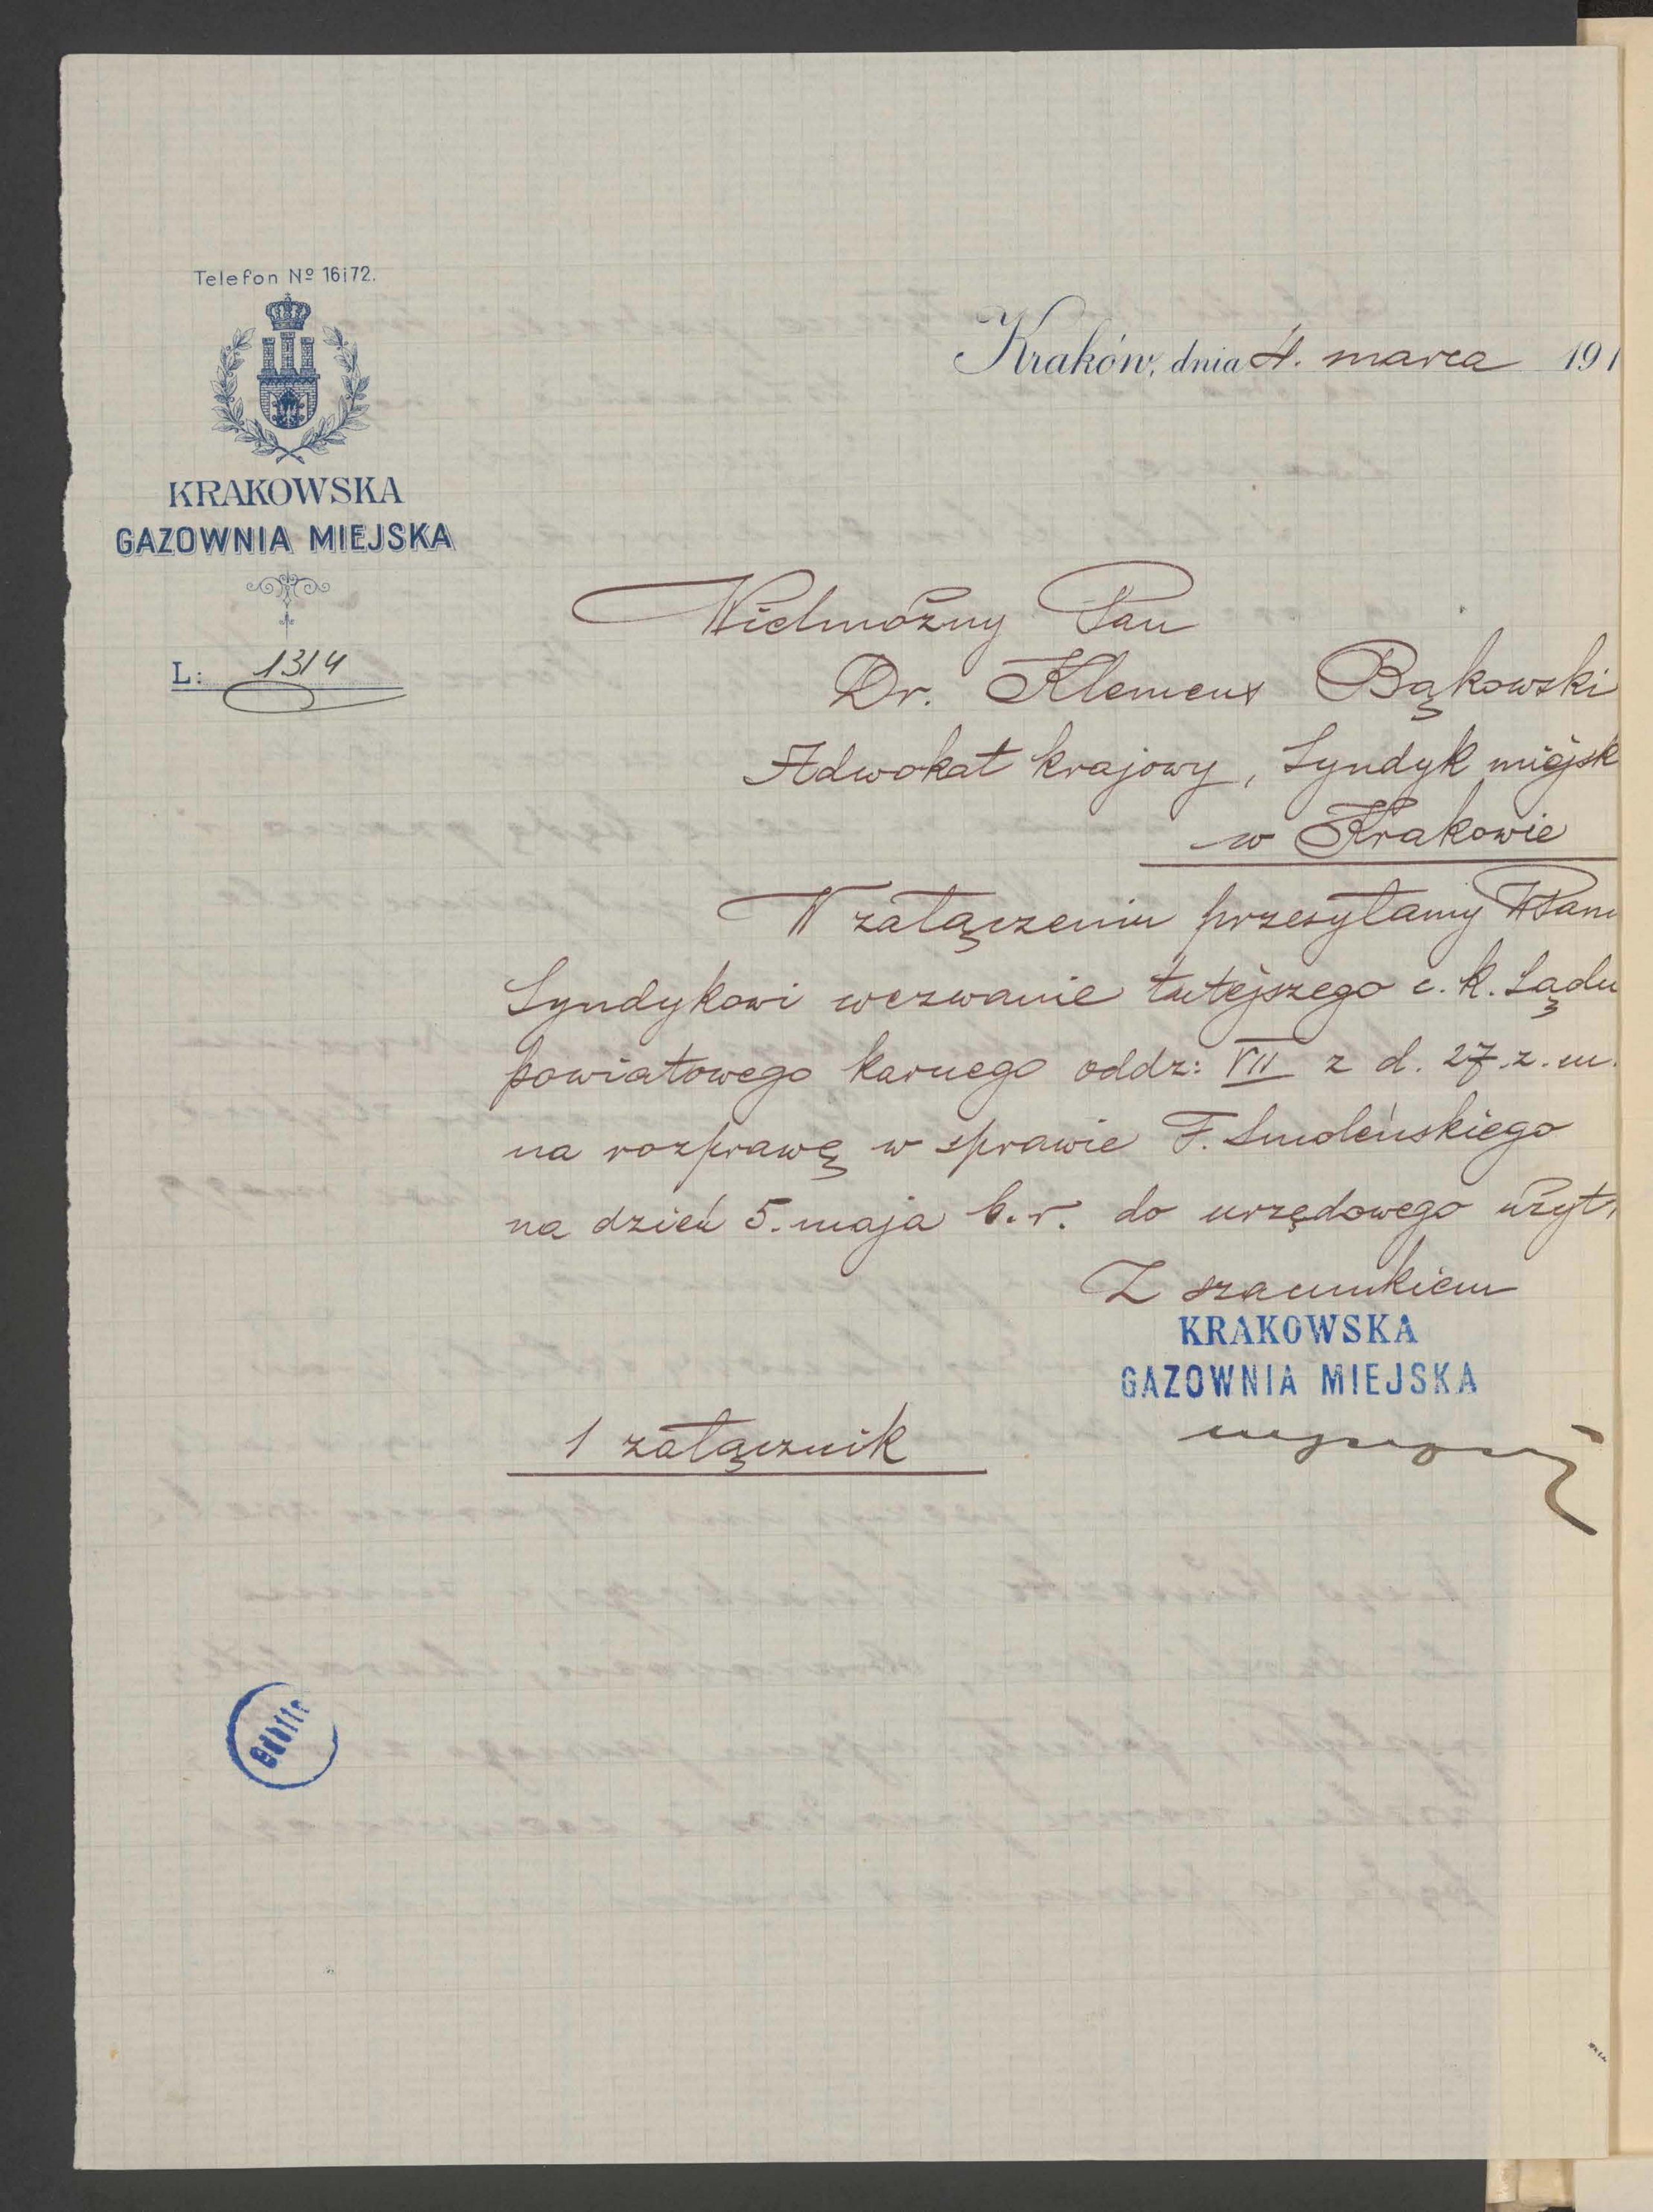 Telefon Nº 16 i 72.
KRAKOWSKA
GAZOWNIA MIEJSKA
L: 1314
Kraków, dnia 4. marca 191
Wielmożny Pan
Dr. Klemens Bąkowski
Adwokat krajowy, Syndyk miejsk
w Krakowie
W załączeniu przesyłamy WPanu
Syndykowi wezwanie tutejszego c. k. Sądu
powiatowego karnego oddz: VII z d. 27. z. m.
na rozprawę w sprawie F. Smoleńskiego
na dzień 5. maja b. r. do urzędowego użytk
Z szacunkiem
KRAKOWSKA
GAZOWNIA MIEJSKA
1 załącznik